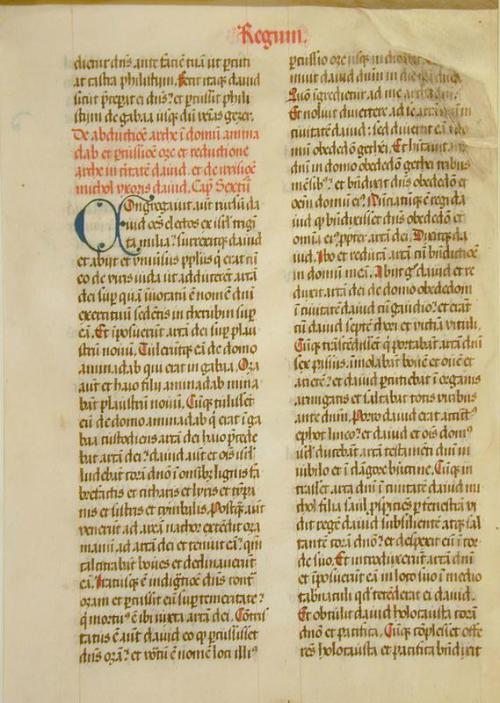 Regum.
dietur dñs ante faciē tuā ut ꝑcuti
at castra philistijm. Fecit itaqꝫ dauid
sicut p̄cepit ei dñs: et ꝑcussit phili
stijm de gabaa usqꝫ dū venias gezer.
De abductiōe arche ī domū amina
dab et ꝑcussiōe oze et reductione
arche in ciuitatē dauid. et de irrisiōe
michol uxoris dauid. Cap̄ Sextū
Congregauit aūt rursū da
uid oēs electos ex isrl̄ trigī
ta milia. Surrexitqꝫ dauid
et abijt et vniuersus ppl̄us q̄ erat cū
eo de viris iuda ut adducerēt archā
dei sup̄ quā inuocatū ē nomē dn̄i
exercituū sedētis in cherubin sup̄
eā. Et īposuerūt archā dei sup̄ plau
strū nouū. Tuleruntqꝫ eā de domo
aminadab qui erat in gabaa. Oza
aūt et haio filij aminadab mina
bāt plaustrū nouū. Cūqꝫ tulissēt
eū de domo aminadab q̄ erat ī ga
baa custodiens archā dei haio p̄cede
bat archā dei: dauid aūt et oīs isrl̄
ludebāt corā dn̄o ī omībꝫ lignis fa
brefactis et citharis et lyris et tympa
nis et sistris et cymbalis. Postqꝫ aūt
venerūt ad areā nachor extēdit oza
manū ad archā dei et tenuit eā: qm̄
calcitrabāt boues et declinauerūt
eā. Iratusqꝫ ē indigtiōe dn̄s contᷓ
ozam et ꝑcussit eū sup̄ temeritate:
q̄ mortuꝰ ē ibi iuxta archā dei. Cōtris
tatus ē aūt dauid eo ꝙ ꝑcussisset
dn̄s ozā: et vocatū ē nomē loci illiꝰ
ꝑcussio oze usqꝫ in diē
muit dauid dn̄m in die
Quō ingredietur ad me
Et noluit diuertere ad se
ciuitatē dauid: sed diuertit eā
mū obededō gethei. Et hitauit
dn̄i in domo obededō gethei tribus
mēsibꝫ: et bn̄dixit dn̄s obededō et
oēm domū eiꝰ. Nūciatūqꝫ ē regi da
uid ꝙ bn̄dixisset dn̄s obededō et
omīa eiꝰ ꝓpter archā dei. Dixitqꝫ da
uid. Ibo et reducā archā cū bn̄dictiōe
in domū meā. Abijt gͦ dauid et re
duxit archā dei de domo obededom
ī ciuitatē dauid cū gaudio: et erāt
cū dauid septē chori et victīa vituli.
Cūqꝫ trāscēdissēt q̄ portabāt archā dn̄i
sex passus. īmolabat bouē et ouē et
arietē: et dauid ꝑcutiebat ī organis
armigatis et saltabat totis viribus
ante dn̄m. Porro dauid erat accīctꝰ
ephot lineo: et dauid et oīs domꝰ
isrl̄ ducebāt archā testamēti dn̄i in
iubilo et ī clāgore buccine. Cūqꝫ in
trasset archa dn̄i ī ciuitatē dauid mi
chol filia saul ꝓspiciēs ꝑ fenestrā vi
dit regē dauid subsiliente atqꝫ sal
tantē corā dn̄o: et despexit eū ī cor
de suo. Et introduxerūt archā dn̄i
et īposuerūt eā in loco suo ī medio
tab̄naculi qd̄ tetēderat ei dauid.
Et obtulit dauid holocausta corā
dn̄o et pacifica. Cūqꝫ cōplesset offe
rēs holocausta et pacifica bn̄dixit